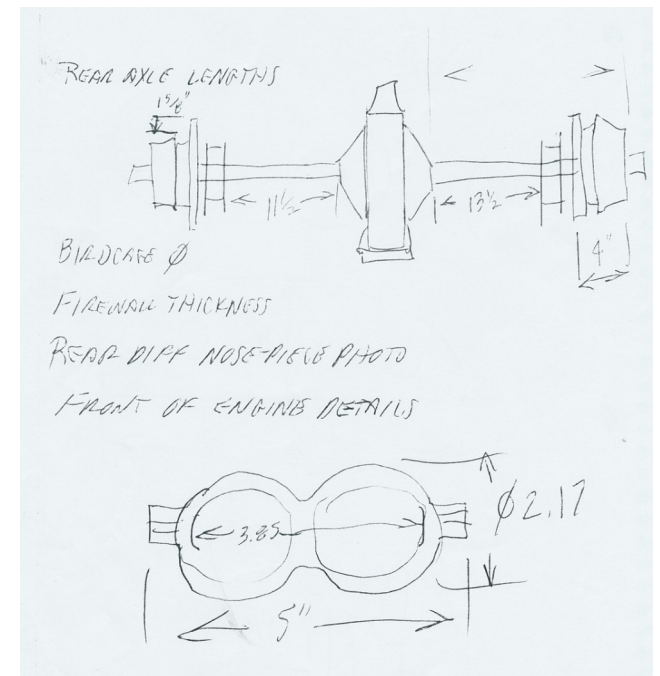 REAR AXLE LENGTHS
1 5/8"
11 1/2
13 1/2
4"
BIRDCAGE Ø
FIREWALL THICKNESS
REAR DIFF NOSE-PIECE PHOTO
FRONT OF ENGINE DETAILS
3.85
Ø2.17
5"